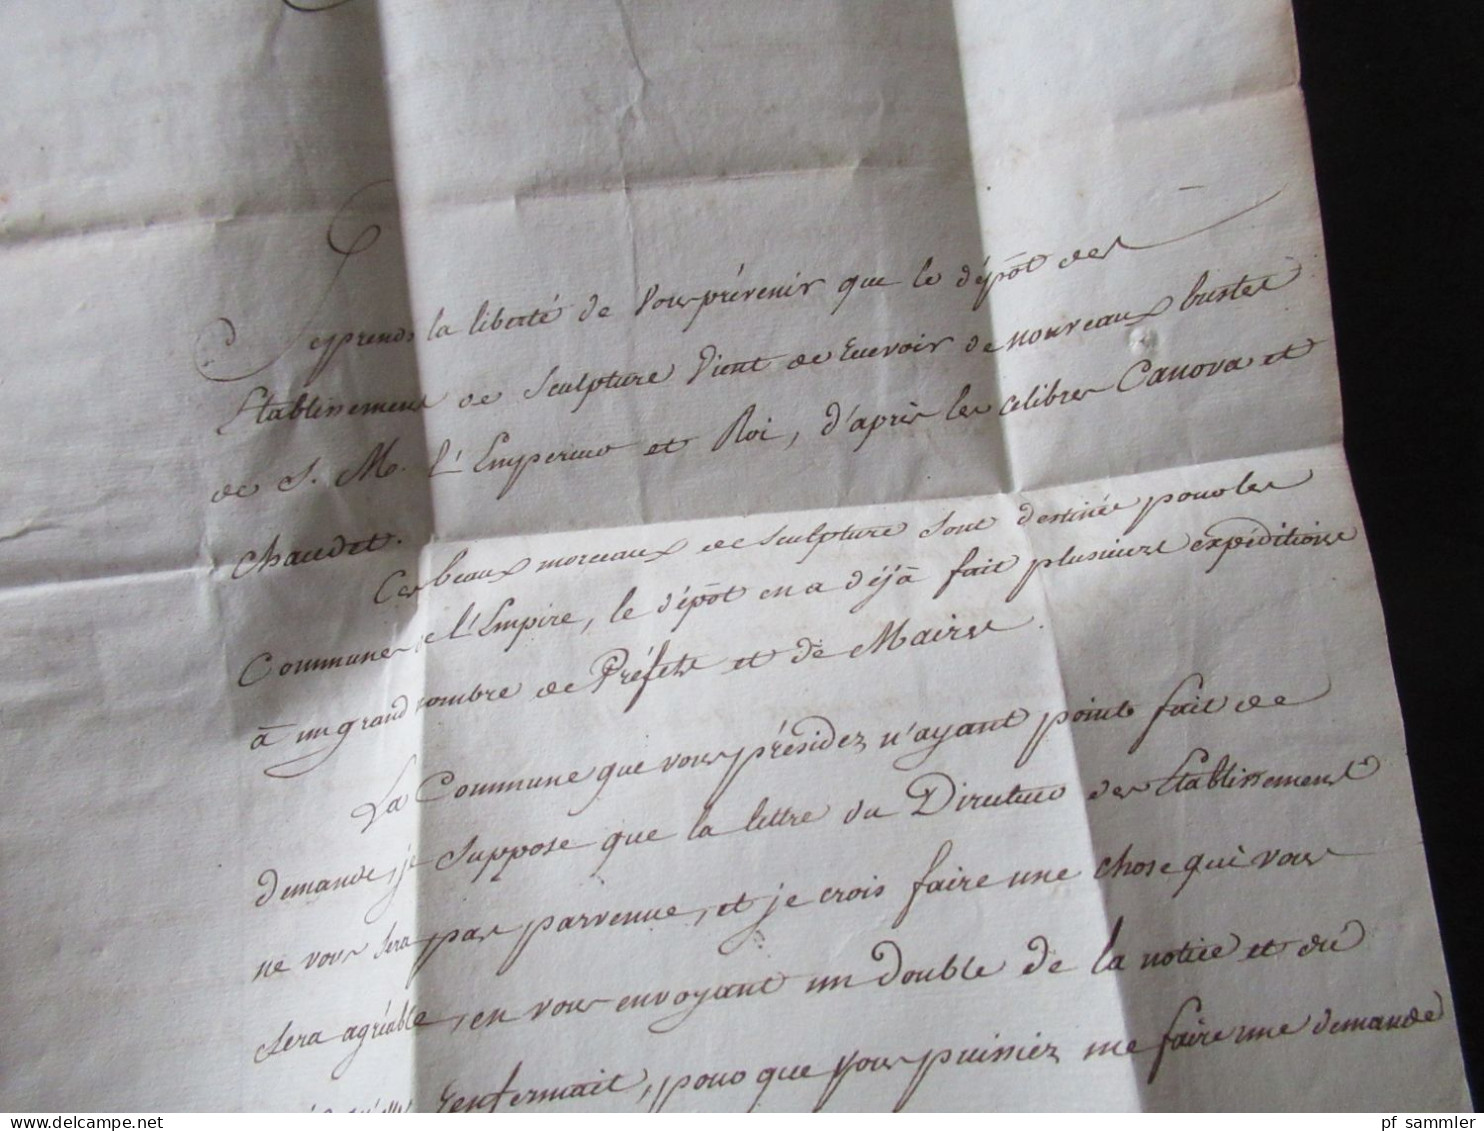 Je prends la liberté de vous prévenir que le dépôt des
Etablissemens de Sculpture vient de recevoir de nouveaux bustes
de S. M. l'Empereur et Roi, d'après les célèbres Canova et
Chaudet.
Ces beaux morceaux de sculpture sont destinés pour les
Communes de l'Empire, le dépôt en a déjà fait plusieurs expéditions
à un grand nombre de Préfets et de Maires.
La Commune que vous présidez n'ayant point fait de
demande, je suppose que la lettre du Directeur des Etablissemens
ne vous sera pas parvenue, et je crois faire une chose qui vous
sera agréable, en vous envoyant un double de la notice et du
qu'elle renfermait, pour que vous puissiez me faire une demande
pf sammler